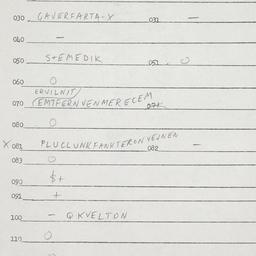 030 GAVERFARTA-Y 031 —
040 —
050 S+EMEDIK 051 O
060 O
ERVILNIT/
070 (EMTFERNVENMERECEM 071
080 O
X 081 PLUCLUNKFANHTERON VEJNEN 082 —
083 O
090 $+
091 +
100 — QKVELTON
110 O